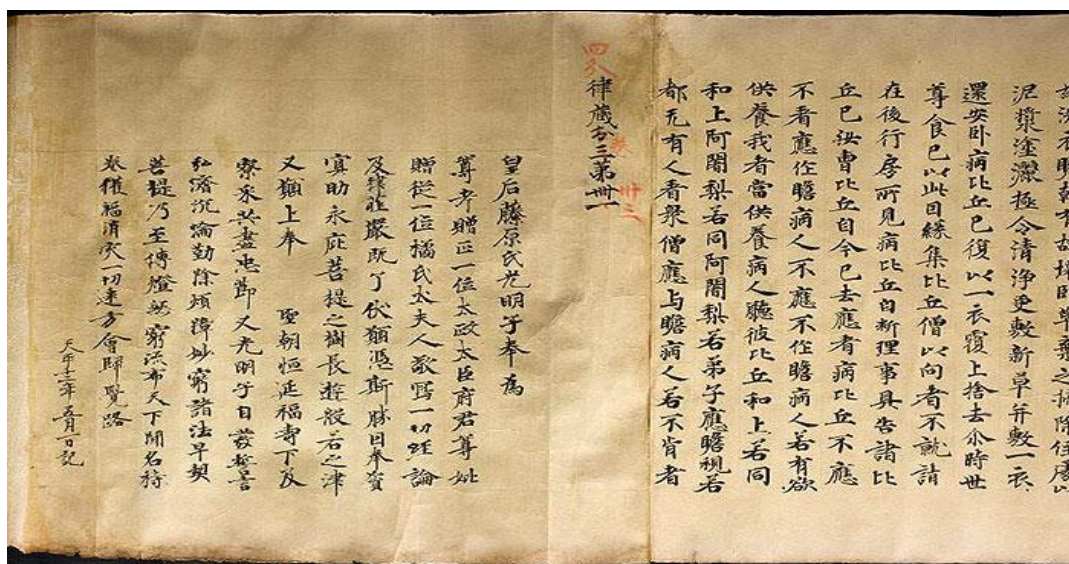 乾有故壞卧草棄之掃除住處以
泥漿塗灑極令清淨更敷新草并敷一衣
還安卧病比丘已復以一衣覆上捨去尒時世
尊食已以此因緣集比丘僧以向者不就請
在後行房所見病比丘自斷理事具告諸比
丘已汝曹比丘自今已去應看病比丘不應
不看應作瞻病人不應不作瞻病人若有欲
供養我者當供養病人聽彼比丘和上若同
和上阿闍梨若同阿闍梨若弟子應瞻視若
都无有人看衆僧應与瞻病人若不肯者
四分
律藏分三第卌一
卷卅三
皇后藤原氏光明子奉為
尊考贈正一位太政太臣府君尊妣
贈從一位橘氏太夫人敬寫一切經論
及律莊嚴既了伏願憑斯勝因奉資
冥助永庇菩提之樹長遊般若之津
又願上奉 聖朝恒延福壽下及
寮采共盡忠節又光明子自發誓言
弘濟沉淪勤除煩障妙窮諸法早契
菩提乃至傳燈無窮流布天下聞名持
卷獲福消灾一切迷方會歸覺路
天平十二年五月一日記